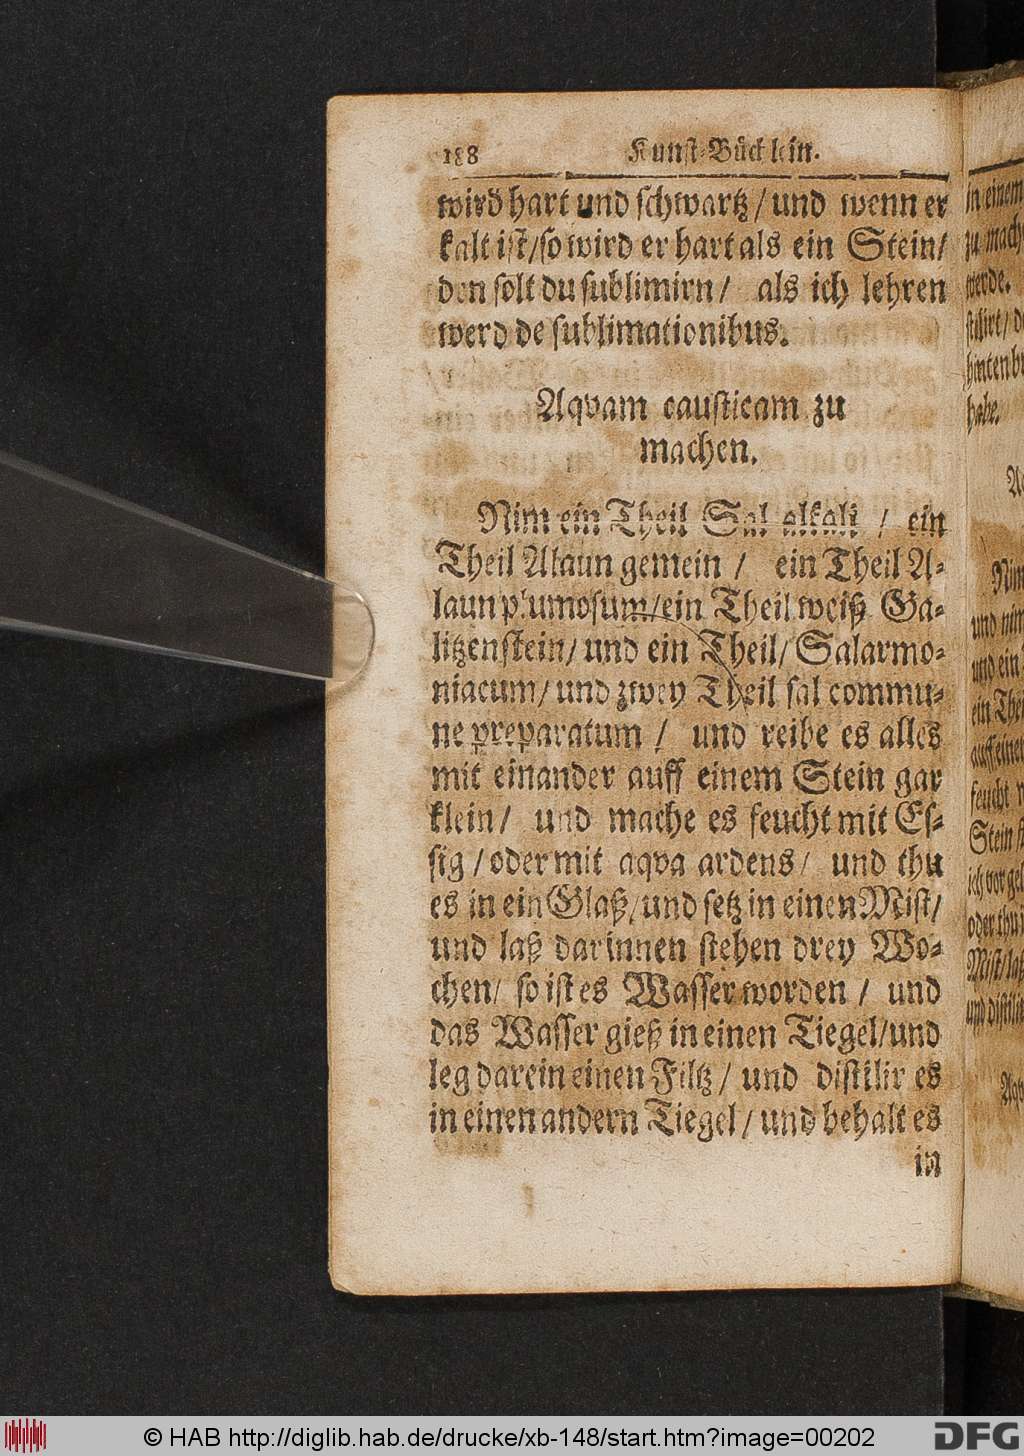 188 Kunst-Bücklein.
wird hart und schwartz/ und wenn er
kalt ist/ so wird er hart als ein Stein/
den solt du sublimirn/ als ich lehren
werd de sublimationibus.
Aqvam causticam zu
machen.
Nim ein Theil Sal alkali / ein
Theil Alaun gemein / ein Theil A-
laun plumosum/ ein Theil weiß Ga-
litzenstein/ und ein Theil/ Salarmo-
niacum/ und zwey Theil sal commu-
ne preparatum / und reibe es alles
mit einander auff einem Stein gar
klein/ und mache es feucht mit Es-
sig / oder mit aqva ardens/ und thu
es in ein Glaß/ und setz in einen Mist/
und laß darinnen stehen drey Wo-
chen/ so ist es Wasser worden / und
das Wasser gieß in einen Tiegel/ und
leg darein einen Filtz / und distilir es
in einen andern Tiegel / und behalt es
in
in einem
zu mach
werde.
habe.
Nim
und nim
und ein
ein The
auff eine
feucht
Stein
ich vor gel
oder thu
Mist/ laß
und distili
© HAB http://diglib.hab.de/drucke/xb-148/start.htm?image=00202
DFG